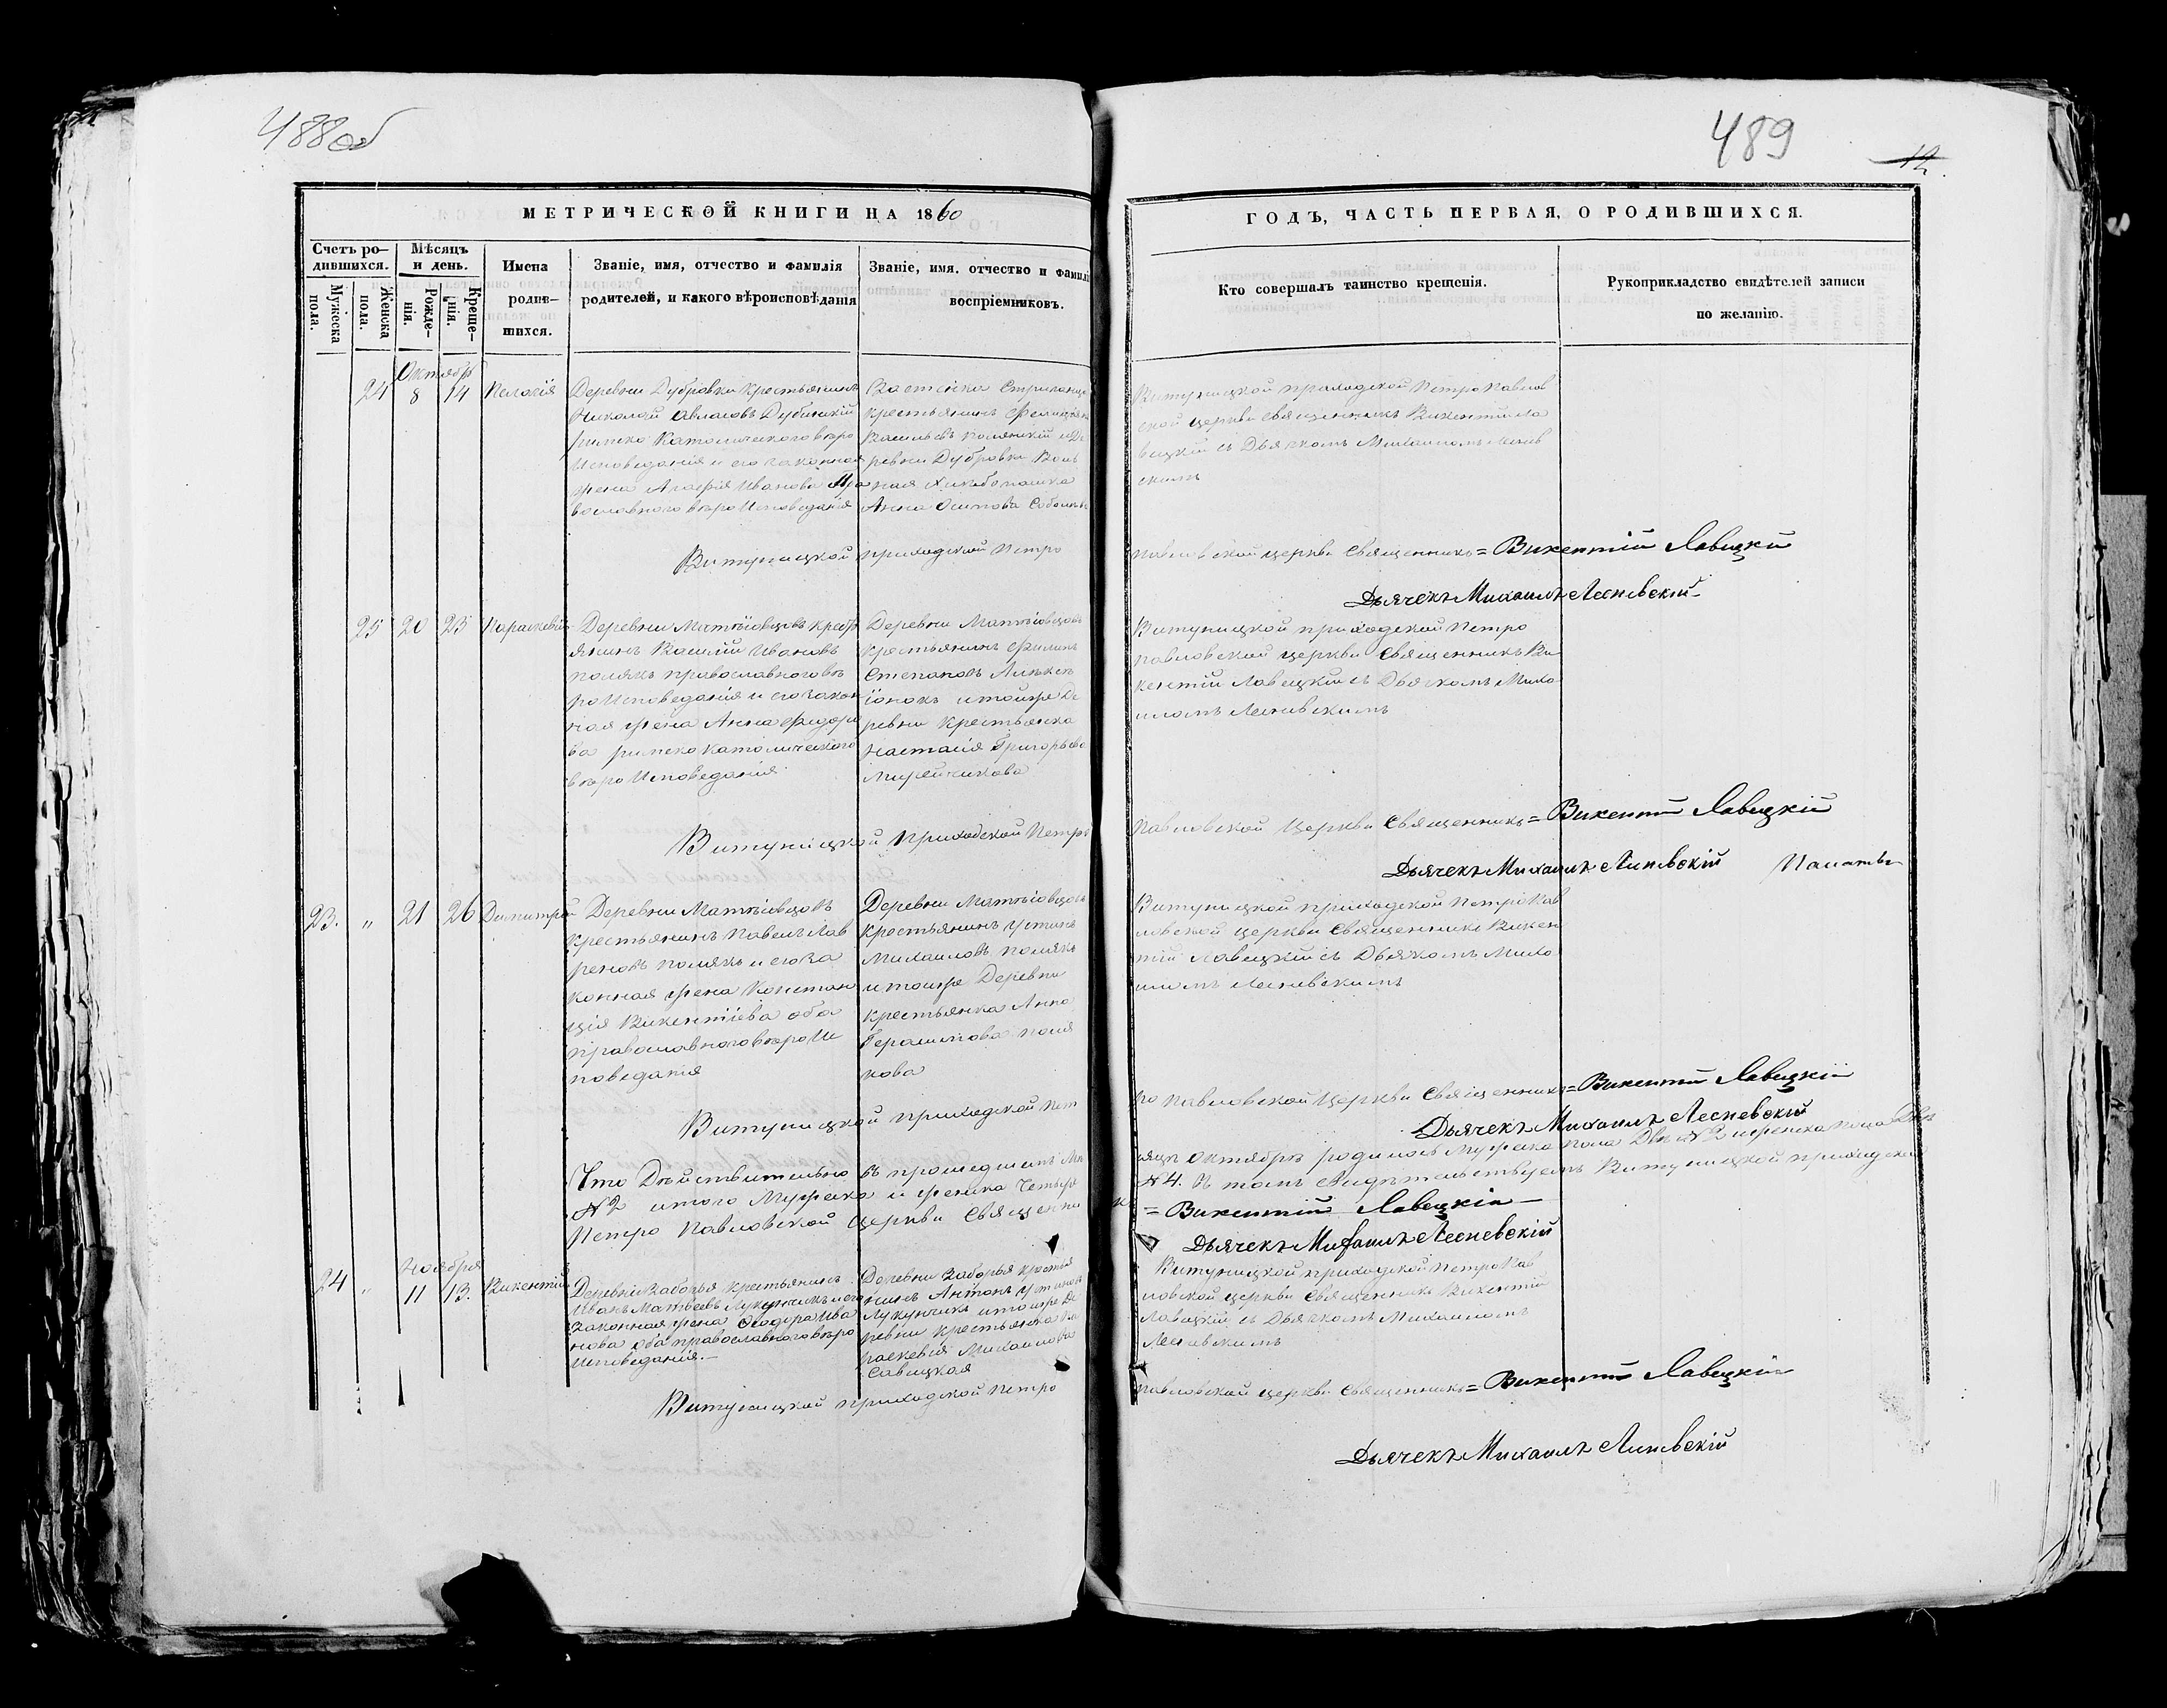 488об
489
12.
МЕТРИЧЕСКОЙ КНИГИ НА 1860
ГОДЪ, ЧАСТЬ ПЕРВАЯ, О РОДИВШИХСЯ.
Счетъ ро-
дившихся.
Мужеска
пола.
Женска
пола.
Мѣсяцъ
и день.
Рожде-
нія.
Креще-
нія.
Имена
родив-
шихся.
Званіе, имя, отчество и фамилія
родителей, и какого вѣроисповѣданія
Званіе, имя. отчество и фамилія
воспріемниковъ.
Кто совершалъ таинство крещенія.
Рукоприкладство свидѣтелей записи
по желанію.
Октябрь
24 8 14 Пелагія
Деревни Дубровки крестьянинъ
Николай Дубицкій
римско Католическаго вѣро
Исповеданія и его законная
жена Агафія Иванова Пра
вославного вѣроИсповеданія
крестьянинъ
ревни Дубровки Воль
ная Хлѣбопашка
Анна Осипова
Витуницкой приходской ПетроПавлов
ской церкви Священникъ Викентій Ла
вицкій съ Дьячкомъ Михаиломъ Леснев
скимъ
Витуницкой приходской Петро
павловской церкви Священникъ = Викентій Лавицкій
Дьячекъ Михаилъ Лесневскій
25 20 23 Параскевія
Деревни Матвѣовцовъ кресть
янинъ Василій Ивановъ
полякъ православного вѣ
роИсповеданія и его закон
ная жена Анна Федоро
ва римско католического
вѣроИсповеданія
Деревни Матвѣовцовъ
крестьянинъ Филипъ
Степановъ
іонокъ и тойже Де
ревни Крестьянка
Настасія Григорьева
Витуницкой приходской Петро
павловской церкви Священникъ Ви
кентій Лавицкій съ Дьячкомъ Миха
иломъ Лесневскимъ
Витуницкой приходской Петро
Павловской Церкви Священникъ = Викентій Лавицкій
Дьячекъ Михаилъ Лесневскій
23. " 21 26 Димитрій
Деревни Матвѣовцовъ
крестьянинъ Павелъ Лав
реновъ полякъ и его за
конная жена Констан
ція Викентіева оба
православного вѣроИс
поведанія
Деревни Матвѣовцовъ
крестьянинъ Устинъ
Михаиловъ полякъ
и тойже Деревни
крестьянка Анна
Герасимова поля
кова
Витуницкой приходской ПетроПав
ловской церкви Священникъ Викен
тій Лавицкій съ Дьячкомъ Миха
иломъ Лесневскимъ
Витуницкой приходской Пет
ро Павловской Церкви Священникъ = Викентій Лавицкій
Дьячекъ Михаилъ Лесневскій
Что Дѣйствительно въ прошедшемъ Мѣ
сяцѣ октябрѣ родилось Мужеска пола Два №2 и женска пола Два
№2 итого Мужеска и женска Четыре
№4. въ томъ свидѣтельствуетъ Витуницкой приходской
Петро Павловской церкви Священни
къ = Викентій Лавицкій
Дьячекъ Михаилъ Лесневскій
Ноября
24 " 11 13. Викентій
Деревни Заборья крестьянинъ
Иванъ Матвеевъ Лукунчикъ и его
законная жена Феодора Ива
нова оба православного вѣро
Исповеданія.
Деревни Заборья крестья
нинъ Антонъ Устиновъ
Лукунчикъ и тойже Де
ревни крестьянка Па
раскевія Михаилова
Савицкая
Витуницкой приходской ПетроПав
ловской церкви Священникъ Викентій
Лавицкій съ Дьячкомъ Михаиломъ
Лесневскимъ
Витуницкой приходской Петро
павловской церкви Священникъ = Викентій Лавицкій
Дьячекъ Михаилъ Лесневскій